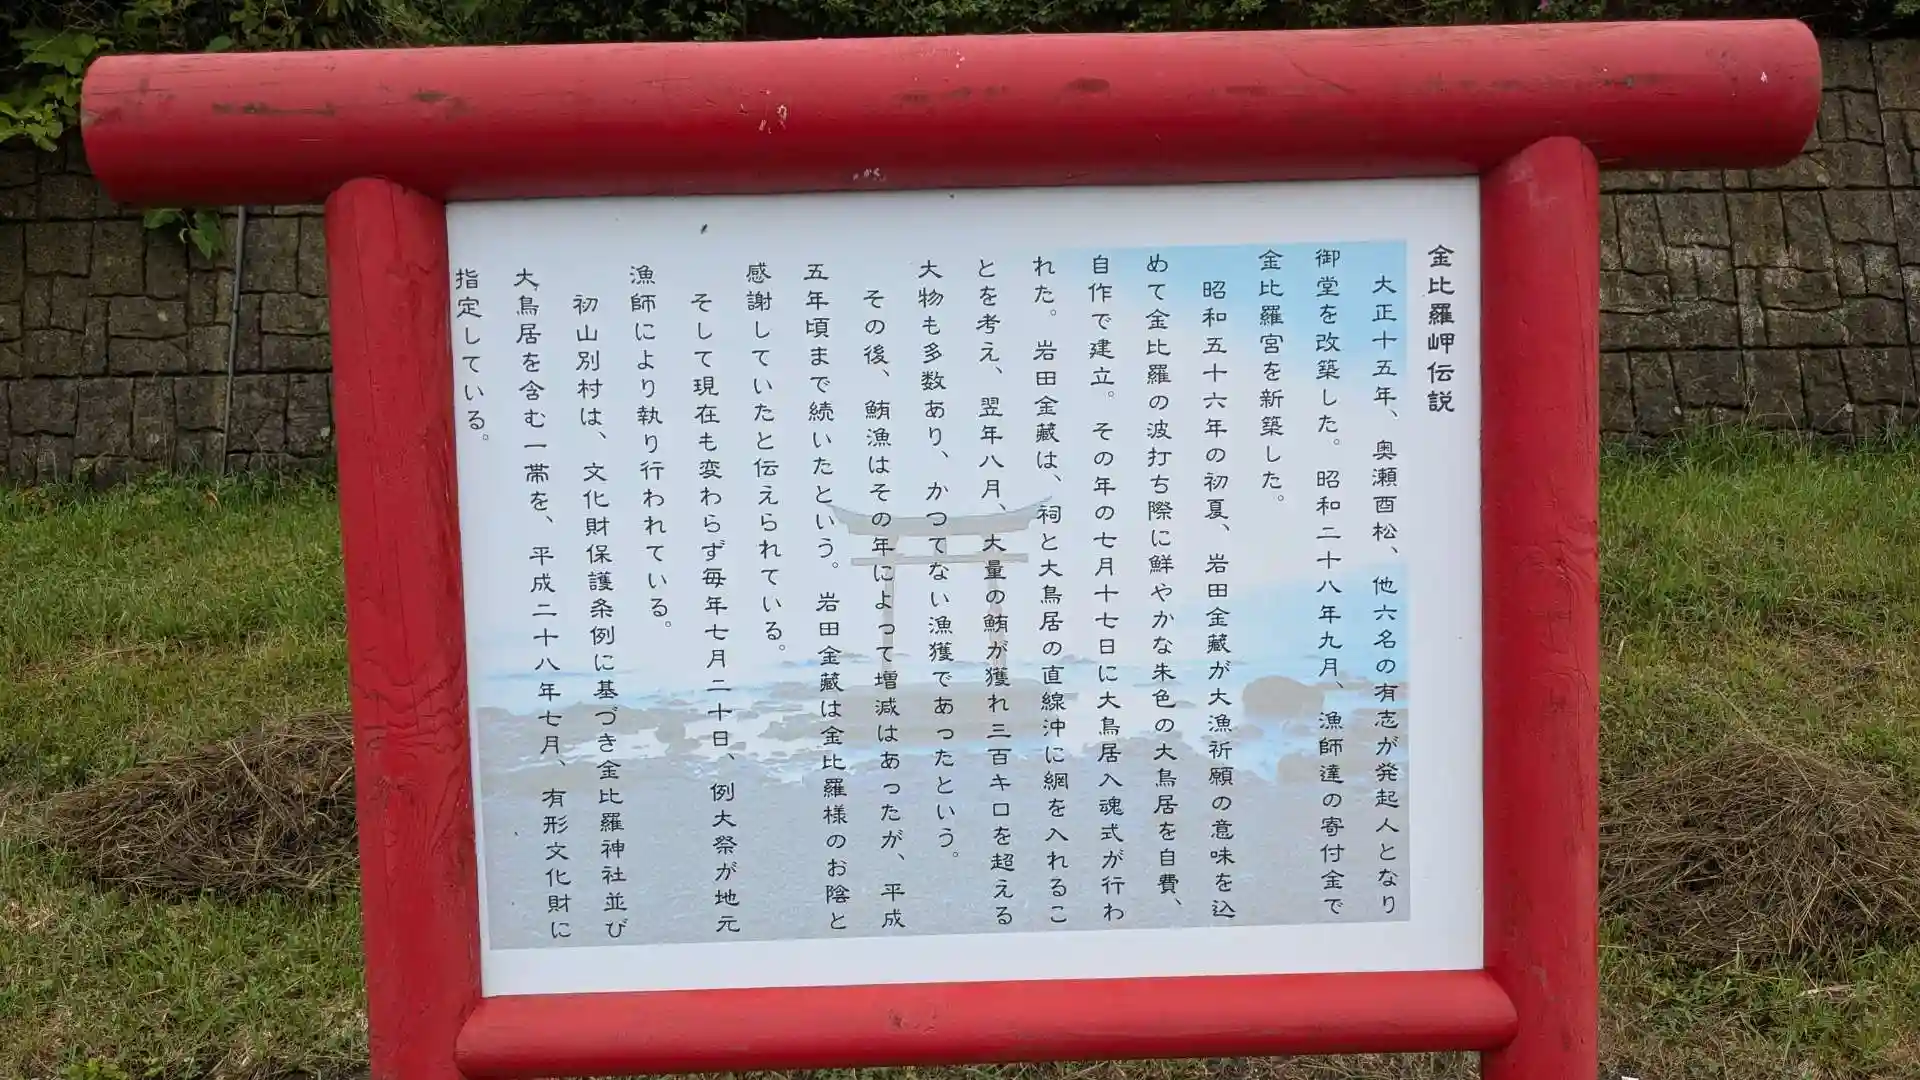 金比羅岬伝説
大正十五年、奥瀬酉松、他六名の有志が発起人となり
御堂を改築した。昭和二十八年九月、漁師達の寄付金で
金比羅宮を新築した。
昭和五十六年の初夏、岩田金藏が大漁祈願の意味を込
めて金比羅の波打ち際に鮮やかな朱色の大鳥居を自費、
自作で建立。その年の七月十七日に大鳥居入魂式が行わ
れた。岩田金藏は、祠と大鳥居の直線沖に網を入れるこ
とを考え、翌年八月、大量の鮪が獲れ三百キロを超える
大物も多数あり、かつてない漁獲であったという。
その後、鮪漁はその年によって増減はあったが、平成
五年頃まで続いたという。岩田金藏は金比羅様のお陰と
感謝していたと伝えられている。
そして現在も変わらず毎年七月二十日、例大祭が地元
漁師により執り行われている。
初山別村は、文化財保護条例に基づき金比羅神社並び
大鳥居を含む一帯を、平成二十八年七月、有形文化財に
指定している。